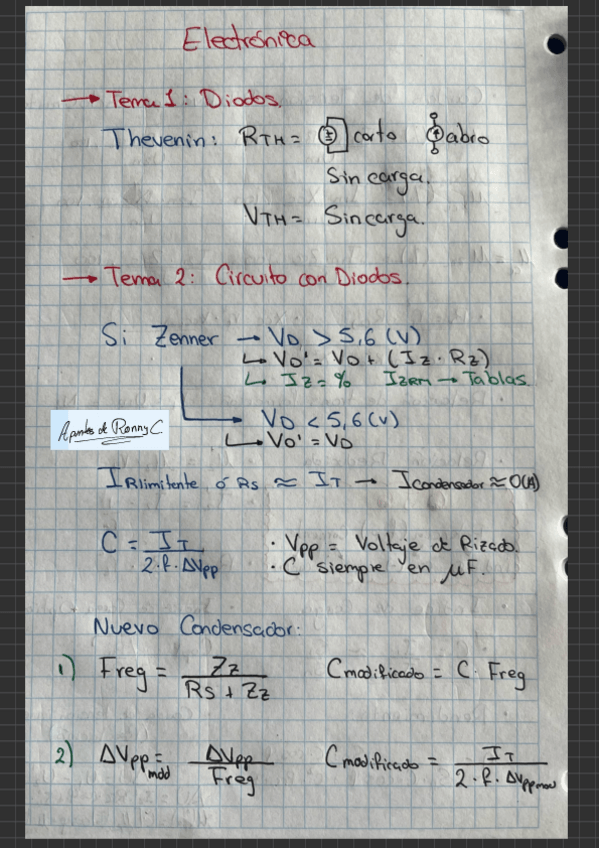 Electrónica
→ Tema 1: Diodos.
Thevenin: RTH = corto abro
Sin carga.
VTH = Sin carga.
→ Tema 2: Circuito con Diodos.
Si Zenner → VD > 5,6 (V)
↳ VD' = VD + (Iz · Rz)
↳ Iz = % IZRM → Tablas
→ VD < 5,6 (V)
↳ VD' = VD
Apuntes de Ronny C.
IRlimitente ó Rs ≈ IT → Icondensador ≈ 0(A)
C = IT / 2·f·ΔVpp
· Vpp = Voltaje de Rizado.
· C siempre en μF.
Nuevo Condensador:
1) Freg = Zz / Rs + Zz Cmodificado = C · Freg
2) ΔVpp mod = ΔVpp / Freg Cmodificado = IT / 2·f·ΔVpp mod